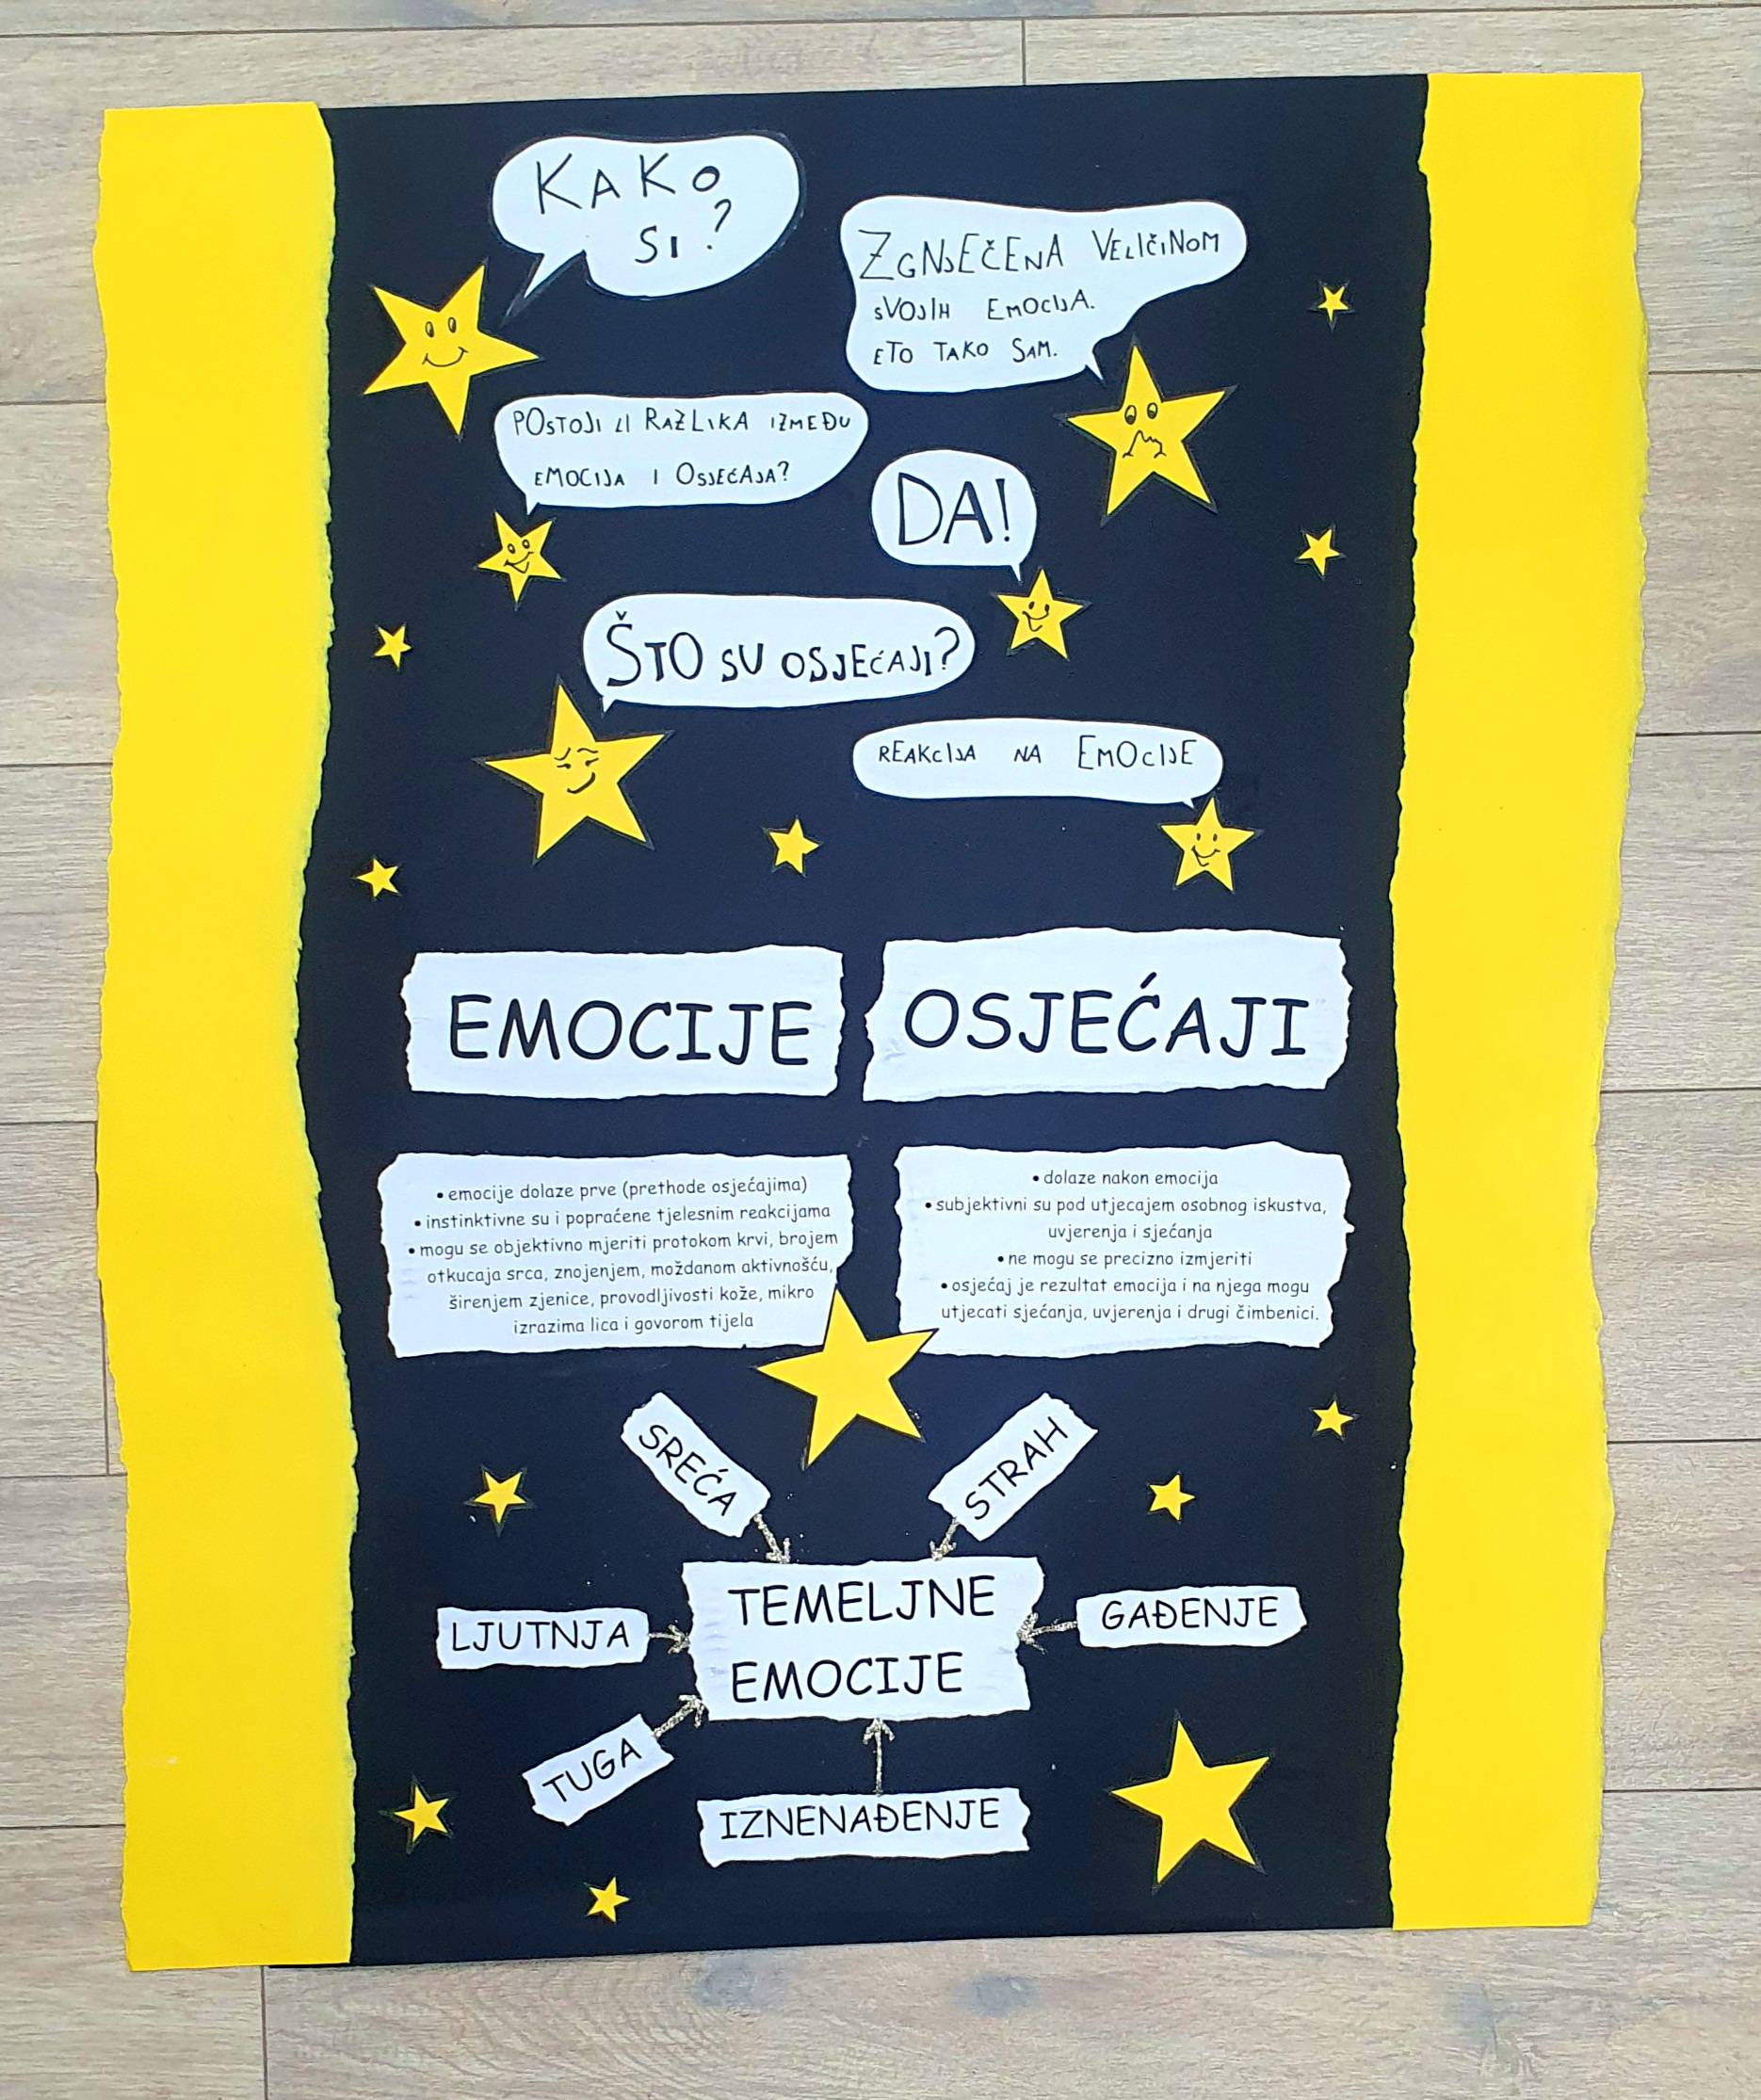 KAKO
SI?
ZGNJEČENA VELIČINOM
SVOJIH EMOCIJA.
ETO TAKO SAM.
POSTOJI LI RAZLIKA IZMEĐU
EMOCIJA I OSJEĆAJA?
DA!
ŠTO SU OSJEĆAJI?
REAKCIJA NA EMOCIJE
EMOCIJE
OSJEĆAJI
• emocije dolaze prve (prethode osjećajima)
• instinktivne su i popraćene tjelesnim reakcijama
• mogu se objektivno mjeriti protokom krvi, brojem
otkucaja srca, znojenjem, moždanom aktivnošću,
širenjem zjenice, provodljivosti kože, mikro
izrazima lica i govorom tijela
• dolaze nakon emocija
• subjektivni su pod utjecajem osobnog iskustva,
uvjerenja i sjećanja
• ne mogu se precizno izmjeriti
• osjećaj je rezultat emocija i na njega mogu
utjecati sjećanja, uvjerenja i drugi čimbenici.
SREĆA
STRAH
TEMELJNE
EMOCIJE
LJUTNJA
GAĐENJE
TUGA
IZNENAĐENJE